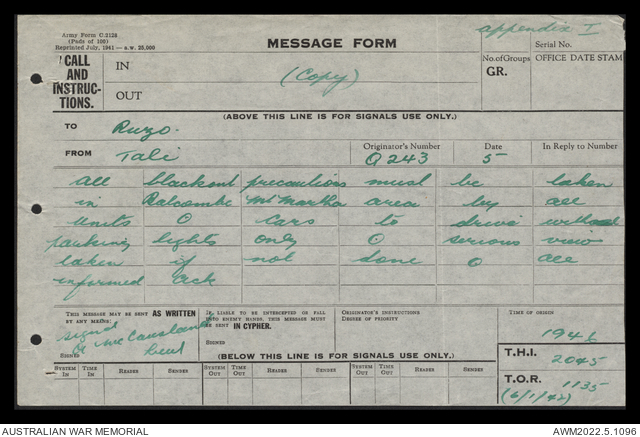 Army Form C.2128
(Pads of 100)
Reprinted July, 1941 — s.w. 25,000
MESSAGE FORM
appendix I
Serial No.
CALL AND INSTRUC-TIONS.
IN
(Copy)
No. of Groups
GR.
OFFICE DATE STAM
OUT
(ABOVE THIS LINE IS FOR SIGNALS USE ONLY.)
TO Ruzo.
FROM Tali
Originator's Number
Q 243
Date
5
In Reply to Number
all blackout precautions must be taken
in Balcombe Mt Martha area by all
units O cars to drive without
parking lights only O serious view
taken if not done O all
informed ack
THIS MESSAGE MAY BE SENT AS WRITTEN
BY ANY MEANS.
signed
McCausland
Lieut
SIGNED
IF LIABLE TO BE INTERCEPTED OR FALL
INTO ENEMY HANDS, THIS MESSAGE MUST
BE SENT IN CYPHER.
SIGNED
ORIGINATOR'S INSTRUCTIONS
DEGREE OF PRIORITY
TIME OF ORIGIN
1946
T.H.I. 2045
T.O.R. 1135
(6/1/42)
(BELOW THIS LINE IS FOR SIGNALS USE ONLY.)
SYSTEM IN TIME IN READER SENDER SYSTEM OUT TIME OUT READER SENDER SYSTEM OUT TIME OUT READER SENDER
AUSTRALIAN WAR MEMORIAL
AWM2022.5.1096